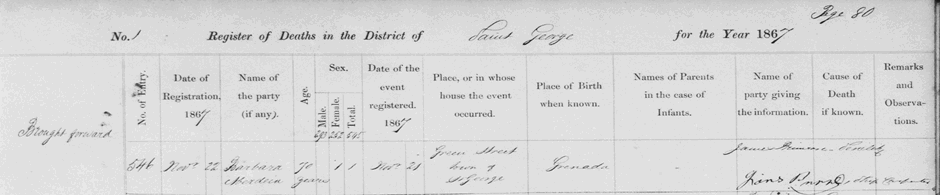 Page 80
No. 1 Register of Deaths in the District of Saint George for the Year 1867
No. of Entry.
Date of Registration, 1867
Name of the party (if any).
Age.
Sex.
Male.
Female.
Total.
Date of the event registered. 1867
Place, or in whose house the event occurred.
Place of Birth when known.
Names of Parents in the case of Infants.
Name of party giving the information.
Cause of Death if known.
Remarks and Observations.
Brought forward 293 252 545
546 Novr. 22 Barbara 70 years 1 1 Novr. 21 Green Street town of St George Grenada - James